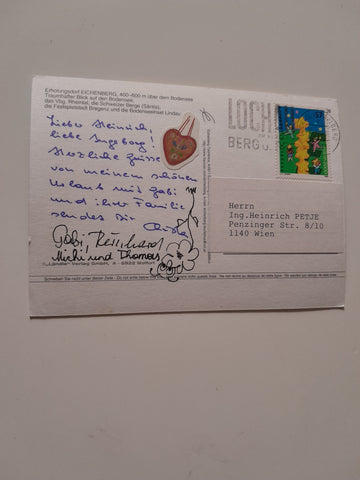 Erholungsdorf EICHENBERG, 400-800 m über dem Bodensee
Traumhafter Blick auf den Bodensee,
das Vbg. Rheintal, die Schweizer Berge (Säntis),
die Festspielstadt Bregenz und die Bodenseeinsel Lindau
Lieber Heinrich,
liebe Ingeborg!
Herzliche Grüsse
von meinem schönen
Urlaub mit Gabi
und ihrer Familie
sendet Dir
Gabi, Reinhard
Michi und Thomas
LOCHAU
BERG U.
Herrn
Ing.Heinrich PETJE
Penzinger Str. 8/10
1140 Wien
Schreiben Sie nicht unter dieser Zeile
"Ländle" Verlag GmbH, A - 6922 Wolfurt